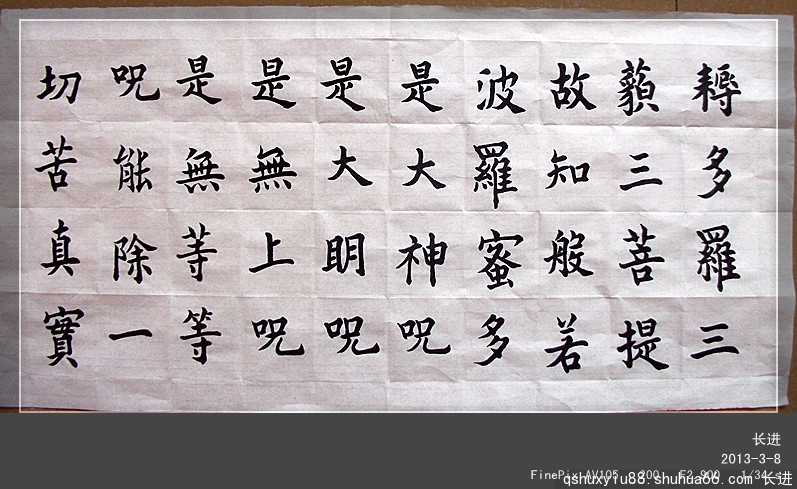 耨多羅三
藐三菩提
故知般若
波羅蜜多
是大神咒
是大明咒
是無上咒
是無等等
咒能除一
切苦真實
长进
2013-3-8
FinePix AV105 200 F2.900 1/34 s
qshuxyiu88.shuhua66.com 长进